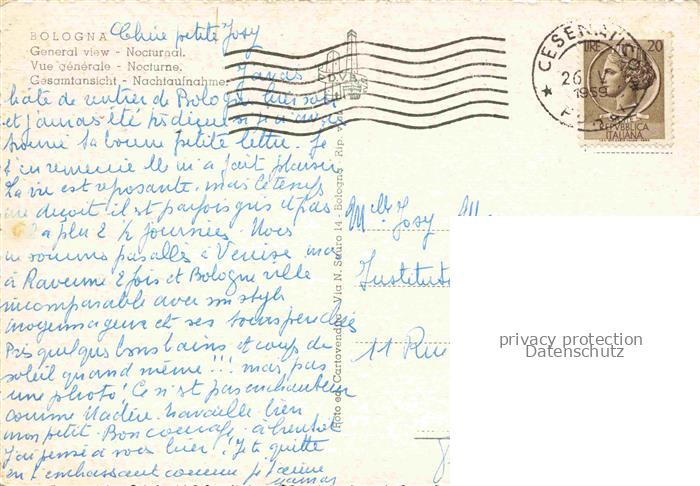 BOLOGNA
General view - Nocturnal.
Vue générale - Nocturne.
Gesamtansicht - Nachtaufnahme.
Chère petite Josy
J'avais
hâte de rentrer de Bologne hier soir
et j'ai
trouvé ta bonne petite lettre. Je
t'en remercie elle m'a fait plaisir
La vie est reposante, mais le temps
me déçoit il est parfois gris et pas
il a plu 2 ½ journées. Nous
ne sommes pas allés à Venise mais
à Ravenne 2 fois et Bologne ville
incomparable avec son style
moyenageux et ses tours penchées
Pris quelques bons bains et coups de
soleil quand même !!! mais pas
une photo! Ce n'est pas enchanteur
comme Madère. Travaille bien
mon petit. Bon courage, à bientôt
J'ai pensé à vous hier! Je te quitte
en t'embrassant comme je t'aime
maman
Foto ed. Cartovendita - Via N. Sauro 14 - Bologna - Rip. viet.
CESENATICO
26 V
1959
LIRE 20
REPUBBLICA
ITALIANA
Mlle Josy
Institut
11 Rue
privacy protection
Datenschutz